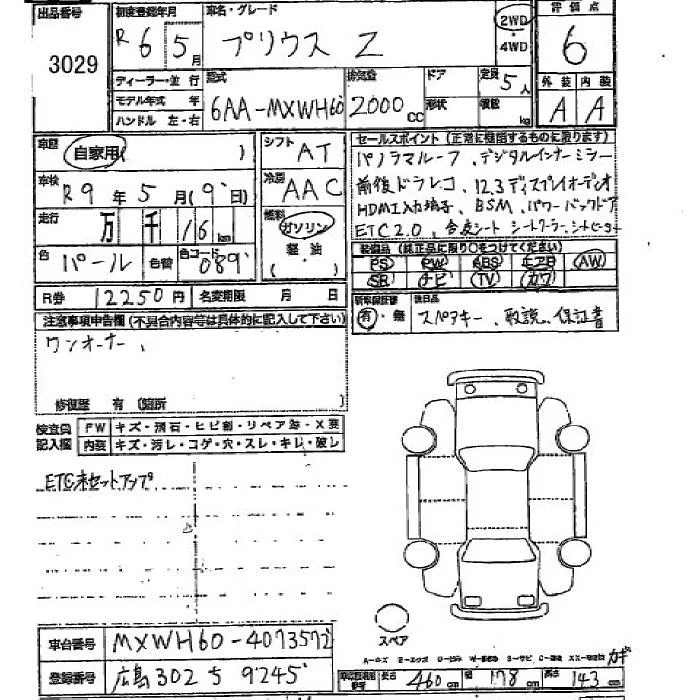 出品番号 3029
初度登録年月 R6 5月
車名・グレード プリウス Z
2WD ・ 4WD
評価点 6
外装 内装
A A
ディーラー・並 行
モデル年式 年
ハンドル 左・右
型式 6AA-MXWH60
排気量 2000 cc
ドア
形状
定員 5人
積載 kg
車歴 自家用 ( )
シフト AT
車検 R9年5月(9日)
冷房 AAC
走行 万 千 16 km
燃料 ガソリン
軽・油
( ・ )
色 パール 色替 色コード 089
R券 12250円 名変期限 月 日
セールスポイント (正常に機能するものに限ります)
パノラマルーフ、デジタルインナーミラー
前後ドラレコ、12.3ディスプレイオーディオ
HDMI入力端子、BSM、パワーバックドア
ETC2.0、合皮シート シートクーラー、シートヒーター
装備品 (純正品に限り○をつけてください)
PS PW ABS エアB AW
SR ナビ TV カワ
新車保証書 有・無
後日品 スペアキー、取説、保証書
注意事項申告欄 (不具合内容等は具体的に記入して下さい)
ワンオーナー、
修復歴 有 (箇所
検査員記入欄
FW キズ・飛石・ヒビ割・リペア跡・X要
内装 キズ・汚レ・コゲ・穴・スレ・キレ・破レ
ETC未セットアップ
スペア
車台番号 MXWH60-4073572
登録番号 広島302ち9245
長さ 460cm 幅 178cm 高さ 143cm